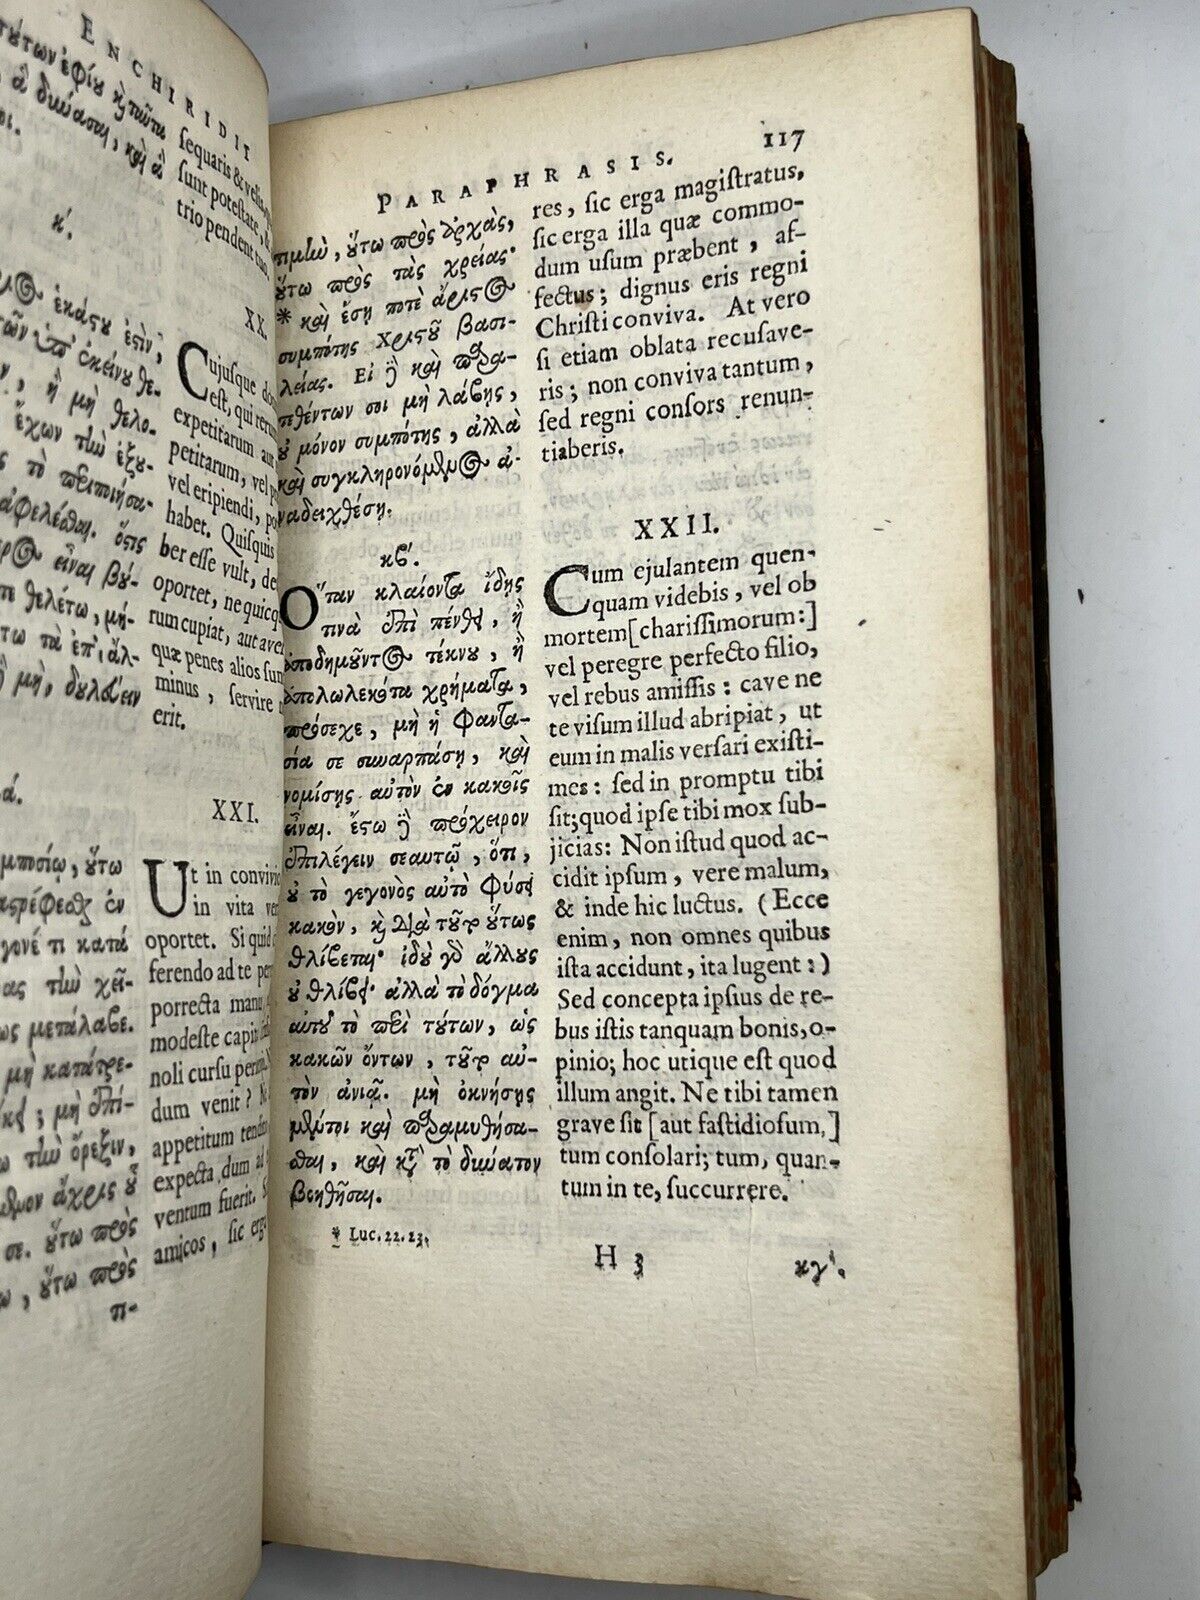 ENCHIRIDII
τύτων ἐφίου κ̀ ταῦτα
ἃ δικύασαι, καὶ ἃ
κʹ.
ἑκάςου ἐςὶν,
ἢ μὴ θελο-
ἔχων τὼ ἐξυ-
τὸ περιποιήσα-
ἀφελέσθαι. ὅςις
εἶναι βύ-
θελέτω, μή-
τω τὰ ἐπ' ἄλ-
μὴ, δυλεύειν
άʹ.
μποσίῳ, ὕτω
ςρέφεσθαι ἐν
γονέ τι κατὰ
ας τὼ χεῖ-
ως μετάλαβε.
μὴ κατάτρε-
μὴ ἐπί-
τὼ ὄρεξιν,
ἄχρις ὗ
σε. ὕτω πρὸς
ω, ὕτω πρὸς
τι-
ſequaris & velis,
ſunt poteſtate,
trio pendent
XX.
Cujuſque do
eſt, qui rerum
expetitarum aut
petitarum, vel
vel eripiendi, po
habet. Quiſquis
ber eſſe vult, de
oportet, ne quicq
rum cupiat, aut aver
quæ penes alios ſun
minus, ſervire
erit.
XXI.
Ut in convivio
in vita ver
oportet. Si quid
ferendo ad te per
porrecta manu
modeſte capin
noli curſu
dum venit?
appetitum tende
expecta dum ad
ventum fuerit.
amicos, ſic erga
PARAPHRASIS. 117
τιμὼ, ὕτω πρὸς ἀρχὰς,
ὕτω πρὸς τὰς χρείας·
* καὶ ἔσῃ ποτὲ ἄριςος
συμπότης Χριςοῦ βασι-
λείας. Εἰ ἢ καὶ παρα-
τεθέντων σοι μὴ λάβῃς,
ὐ μόνον συμπότης, ἀλλὰ
καὶ συγκληρονόμος ἀ-
ναδειχθέσῃ.
κβʹ.
Ὅταν κλαίοντα ἴδῃς
τινὰ ἐπὶ πένθει, ἢ
ἀποδημοῦντος τέκνυ, ἢ
ἀπολωλεκότα χρήματα,
πρόσεχε, μὴ ἡ φαντα-
σία σε συναρπάσῃ, καὶ
νομίσῃς αὐτὸν ἐν κακοῖς
εἶναι. ἔςω ἢ πρόχειρον
ἐπιλέγειν σεαυτῷ, ὅτι,
ὐ τὸ γεγονὸς αὐτὸ φύσει
κακὸν, κ̀ διὰ τοῦτο ὕτως
θλίβεται· ἰδοὺ γὸ ἄλλυς
ὐ θλίβει· ἀλλὰ τὸ δόγμα
αὐτοῦ τὸ περὶ τύτων, ὡς
κακῶν ὄντων, τοῦτο αὐ-
τὸν ἀνιᾷ. μὴ ὀκνήσῃς
μέντοι καὶ παραμυθήσα-
σθαι, καὶ κατὰ τὸ δικύατον
βοηθῆσαι.
* Luc. 22. 23.
res, ſic erga magiſtratus,
ſic erga illa quæ commo-
dum uſum præbent, af-
fectus; dignus eris regni
Chriſti conviva. At vero
ſi etiam oblata recuſave-
ris; non conviva tantum,
ſed regni conſors renun-
tiaberis.
XXII.
Cum ejulantem quen-
quam videbis, vel ob
mortem [chariſſimorum:]
vel peregre perfecto filio,
vel rebus amiſſis: cave ne
te viſum illud abripiat, ut
eum in malis verſari exiſti-
mes: ſed in promptu tibi
ſit; quod ipſe tibi mox ſub-
jicias: Non iſtud quod ac-
cidit ipſum, vere malum,
& inde hic luctus. (Ecce
enim, non omnes quibus
iſta accidunt, ita lugent:)
Sed concepta ipſius de re-
bus iſtis tanquam bonis, o-
pinio; hoc utique eſt quod
illum angit. Ne tibi tamen
grave ſit [aut faſtidioſum,]
tum conſolari; tum, quan-
tum in te, ſuccurrere.
H 3
κγʹ.